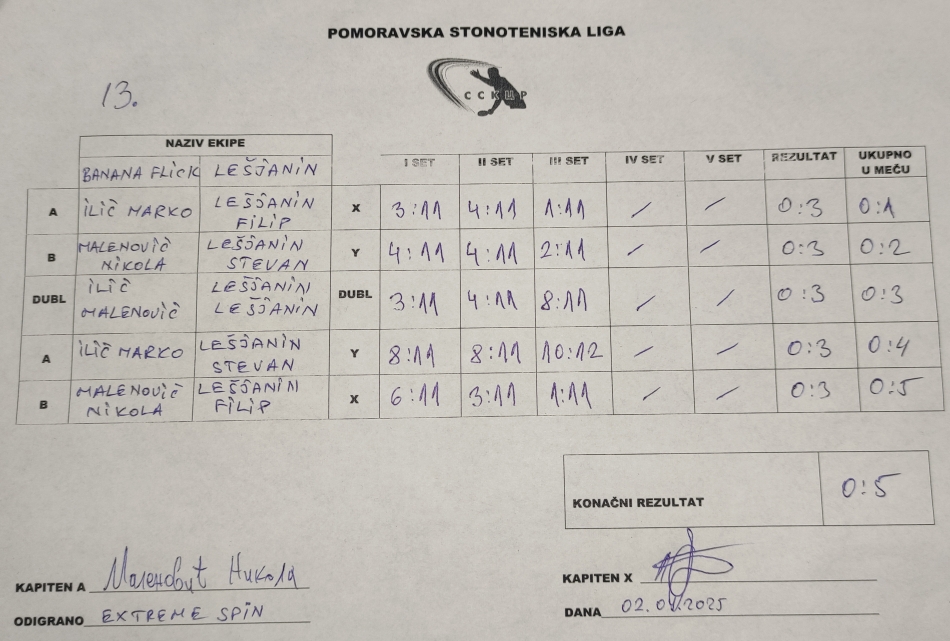 POMORAVSKA STONOTENISKA LIGA
ССКЦР
13.
NAZIV EKIPE
BANANA FLICK LEŠJANIN I SET II SET III SET IV SET V SET REZULTAT UKUPNO U MEČU
A ILIČ MARKO LEŠJANIN FILIP X 3:11 4:11 1:11 / / 0:3 0:1
B MALENOVIČ NIKOLA LEŠJANIN STEVAN Y 4:11 4:11 2:11 / / 0:3 0:2
DUBL ILIČ MALENOVIČ LEŠJANIN LEŠJANIN DUBL 3:11 4:11 8:11 / / 0:3 0:3
A ILIČ MARKO LEŠJANIN STEVAN Y 8:11 8:11 10:12 / / 0:3 0:4
B MALENOVIČ NIKOLA LEŠJANIN FILIP X 6:11 3:11 1:11 / / 0:3 0:5
KONAČNI REZULTAT 0:5
KAPITEN A Маленовић Никола KAPITEN X
ODIGRANO EXTREME SPIN DANA 02.04.2025